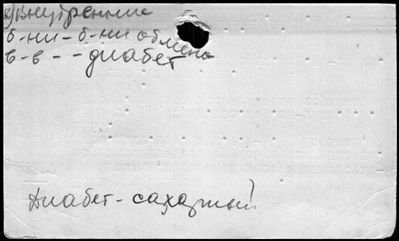 Внутренние
б-ни-б-ни обмена
в-в--диабет
Диабет-сахарный